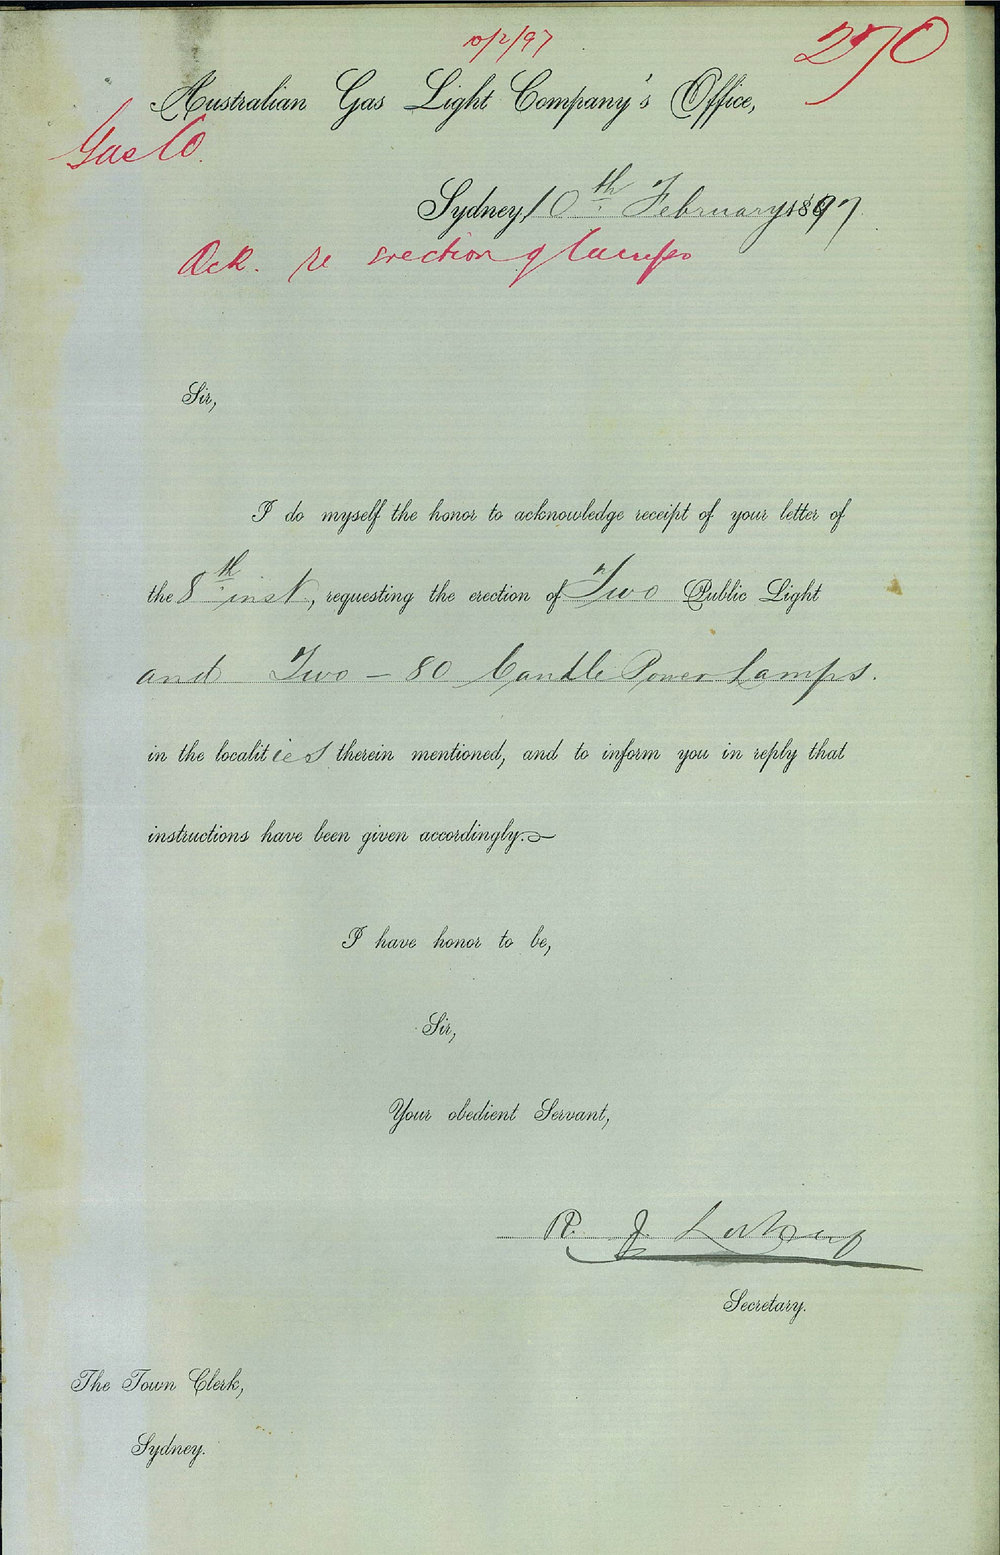 10/2/97
270
Australian Gas Light Company's Office,
Gas Co.
Sydney, 10th February 1897.
Ack. re erection of lamps
Sir,
I do myself the honor to acknowledge receipt of your letter of
the 8th inst., requesting the erection of Two Public Light
and Two - 80 Candle Power Lamps.
in the localities therein mentioned, and to inform you in reply that
instructions have been given accordingly.
I have honor to be,
Sir,
Your obedient Servant,
R. J.
Secretary.
The Town Clerk,
Sydney.